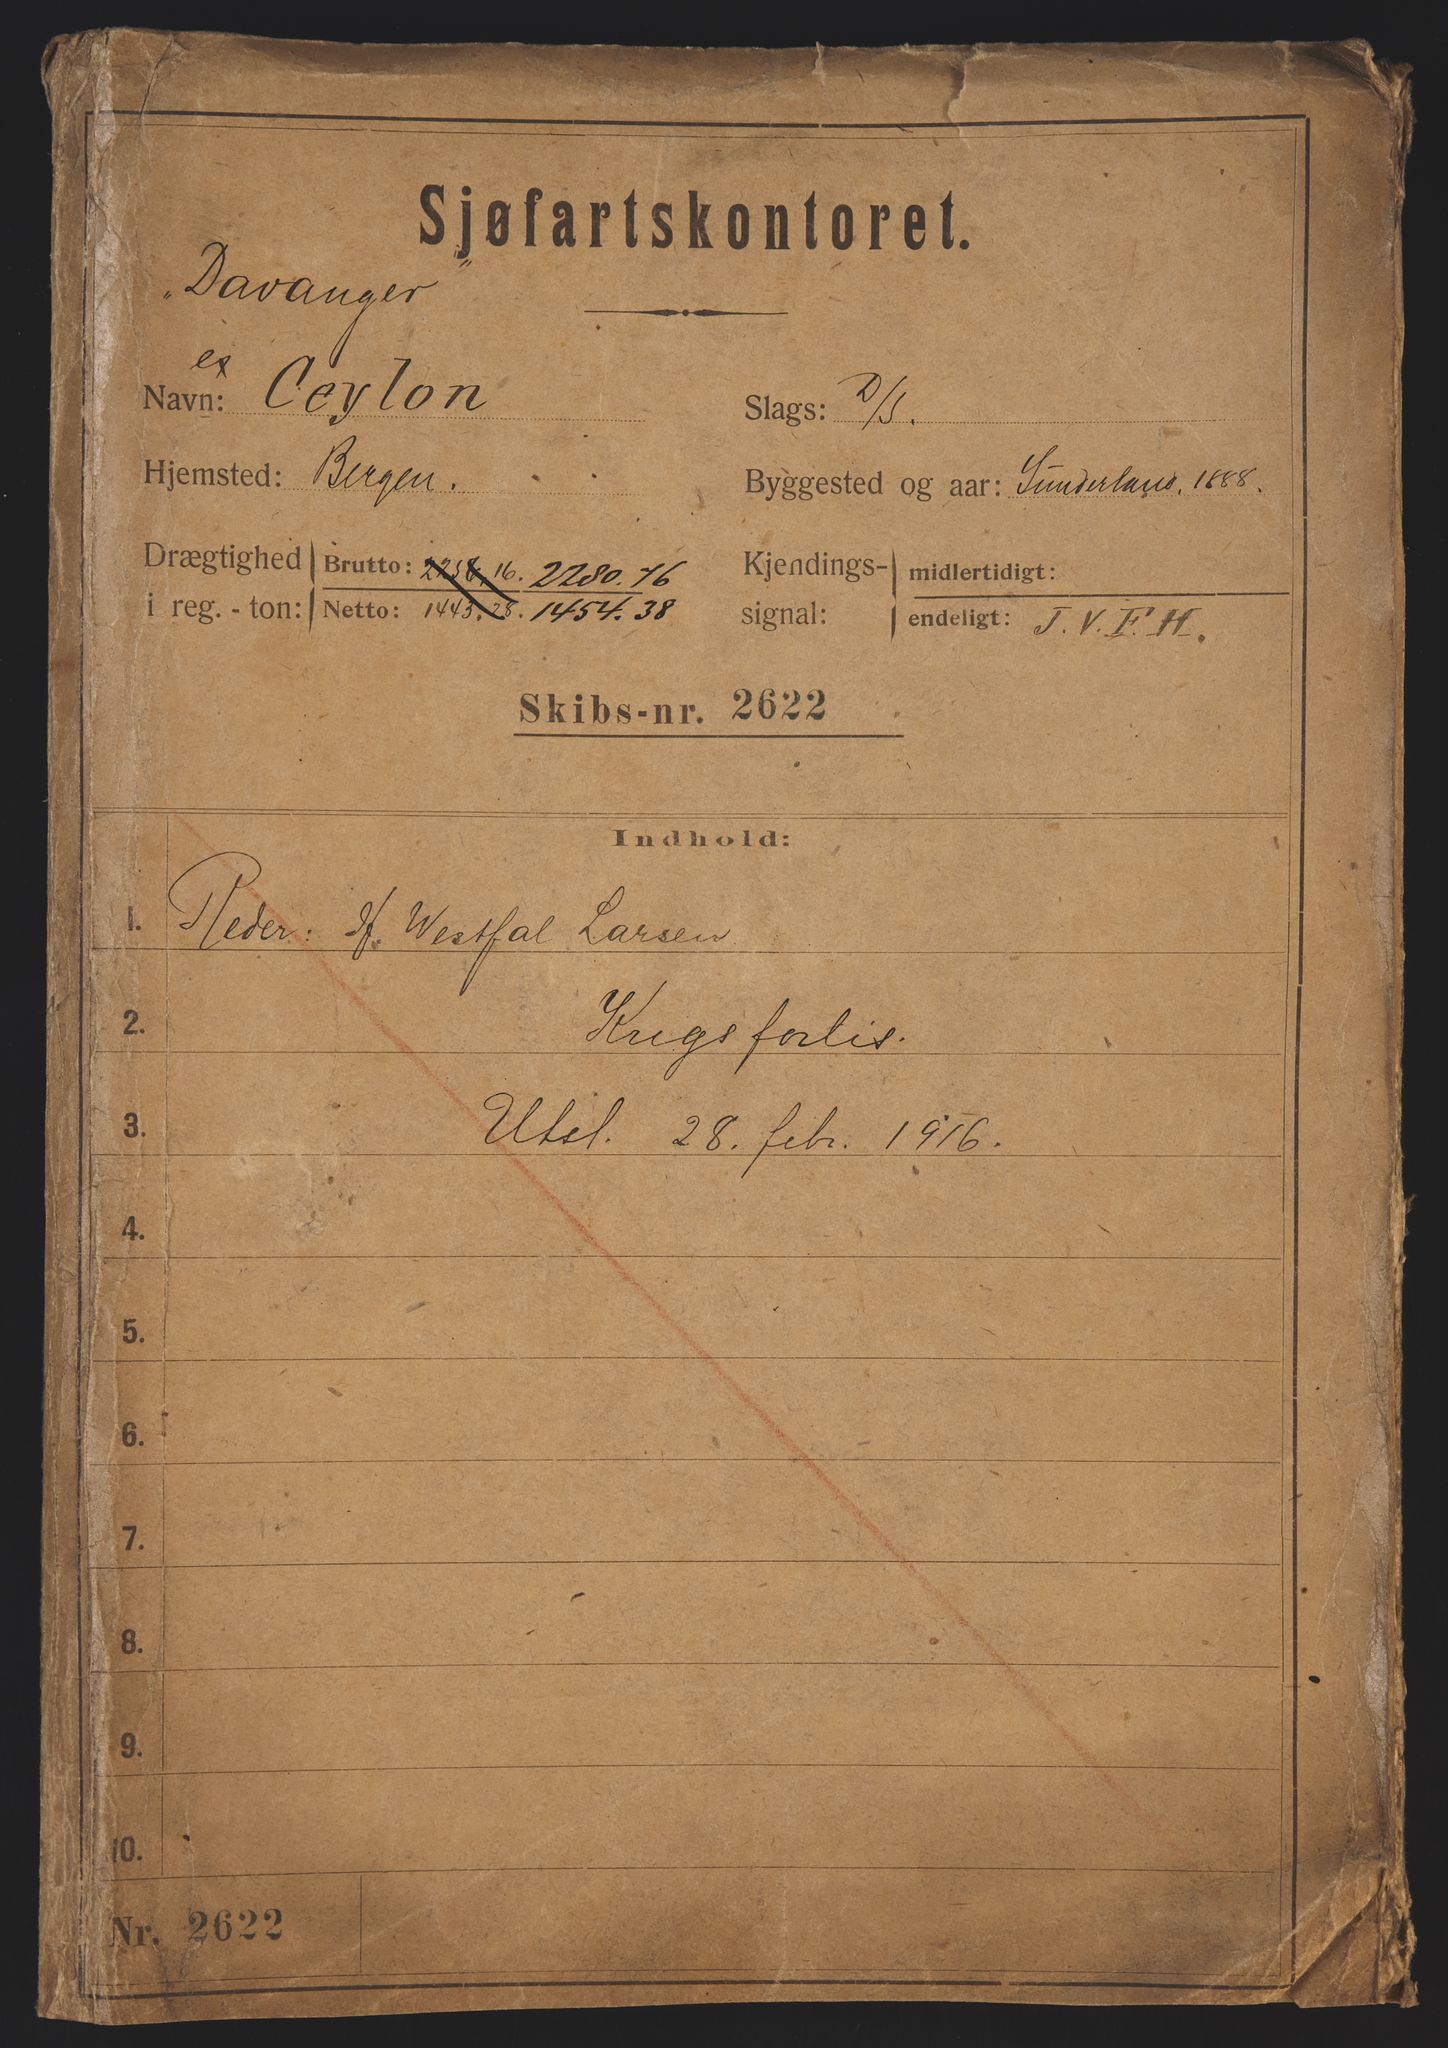 Sjøfartskontoret.
„Davanger"
ex
Navn: Ceylon
Slags: D/S.
Hjemsted: Bergen.
Byggested og aar: Sunderland. 1888.
Drægtighed i reg.-ton: Brutto: 2256,16. 2280.76
Netto: 1443.28. 1454.38
Kjendings-signal: midlertidigt:
endeligt: J. V. F. H.
Skibs-nr. 2622
Indhold:
1. Reder: H. Westfal Larsen
2. Krigsforlis.
3. Utsl. 28. febr. 1916.
4.
5.
6.
7.
8.
9.
10.
Nr. 2622